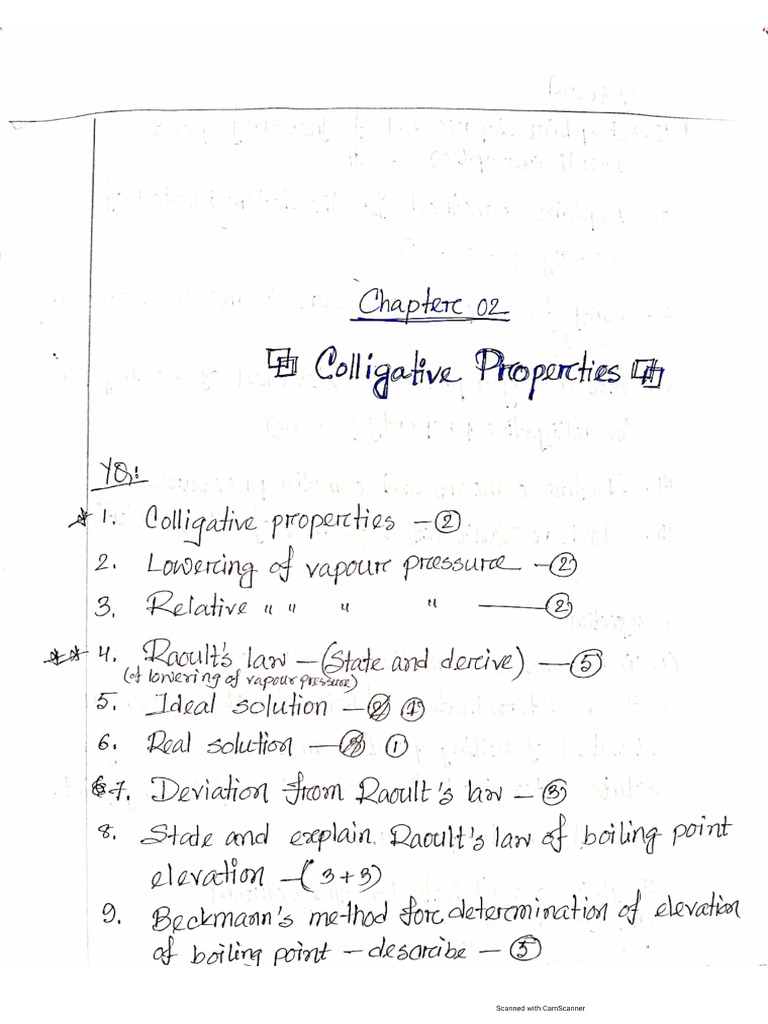 Chapterc 02
Colligative Propercties
YQ:
1. Colligative propercties – 2
2. Lowercing of vapourc prcessurce – 2
3. Relative " " " " — 2
4. Raoult's law – (State and dercive) – 5
(of lowering of vapour pressure)
5. Ideal solution – 1
6. Real solution – 1
7. Deviation from Raoult's law – 3
8. State and explain Raoult's law of boiling point
elevation – (3+3)
9. Beckmann's method forc detercmination of elevation
of boiling point – descrcibe – 5
Scanned with CamScanner